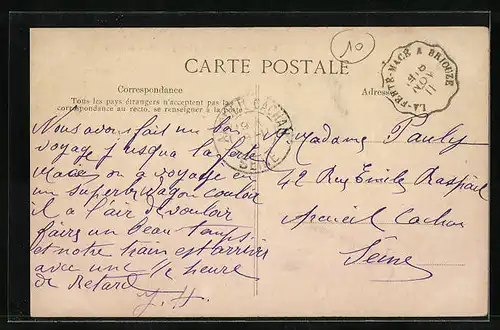 10
CARTE POSTALE
LA-FERTÉ-MACÉ A BRIOUZE
11
Correspondance
Tous les pays étrangers n'acceptent pas la
correspondance au recto, se renseigner à la poste
Adresse
ARCUEIL-CACHAN
SEINE
Nous avons fait un bon
voyage jusqua la ferte
Macé on a voyagé en
un superbe wagon couloir
il a l'air de vouloir
faire un beau temps
et notre train est arrivé
avec une 1/2 heure
de retard
Madame Pauly
42 Rue Emile Raspail
Arcueil Cachan
Seine